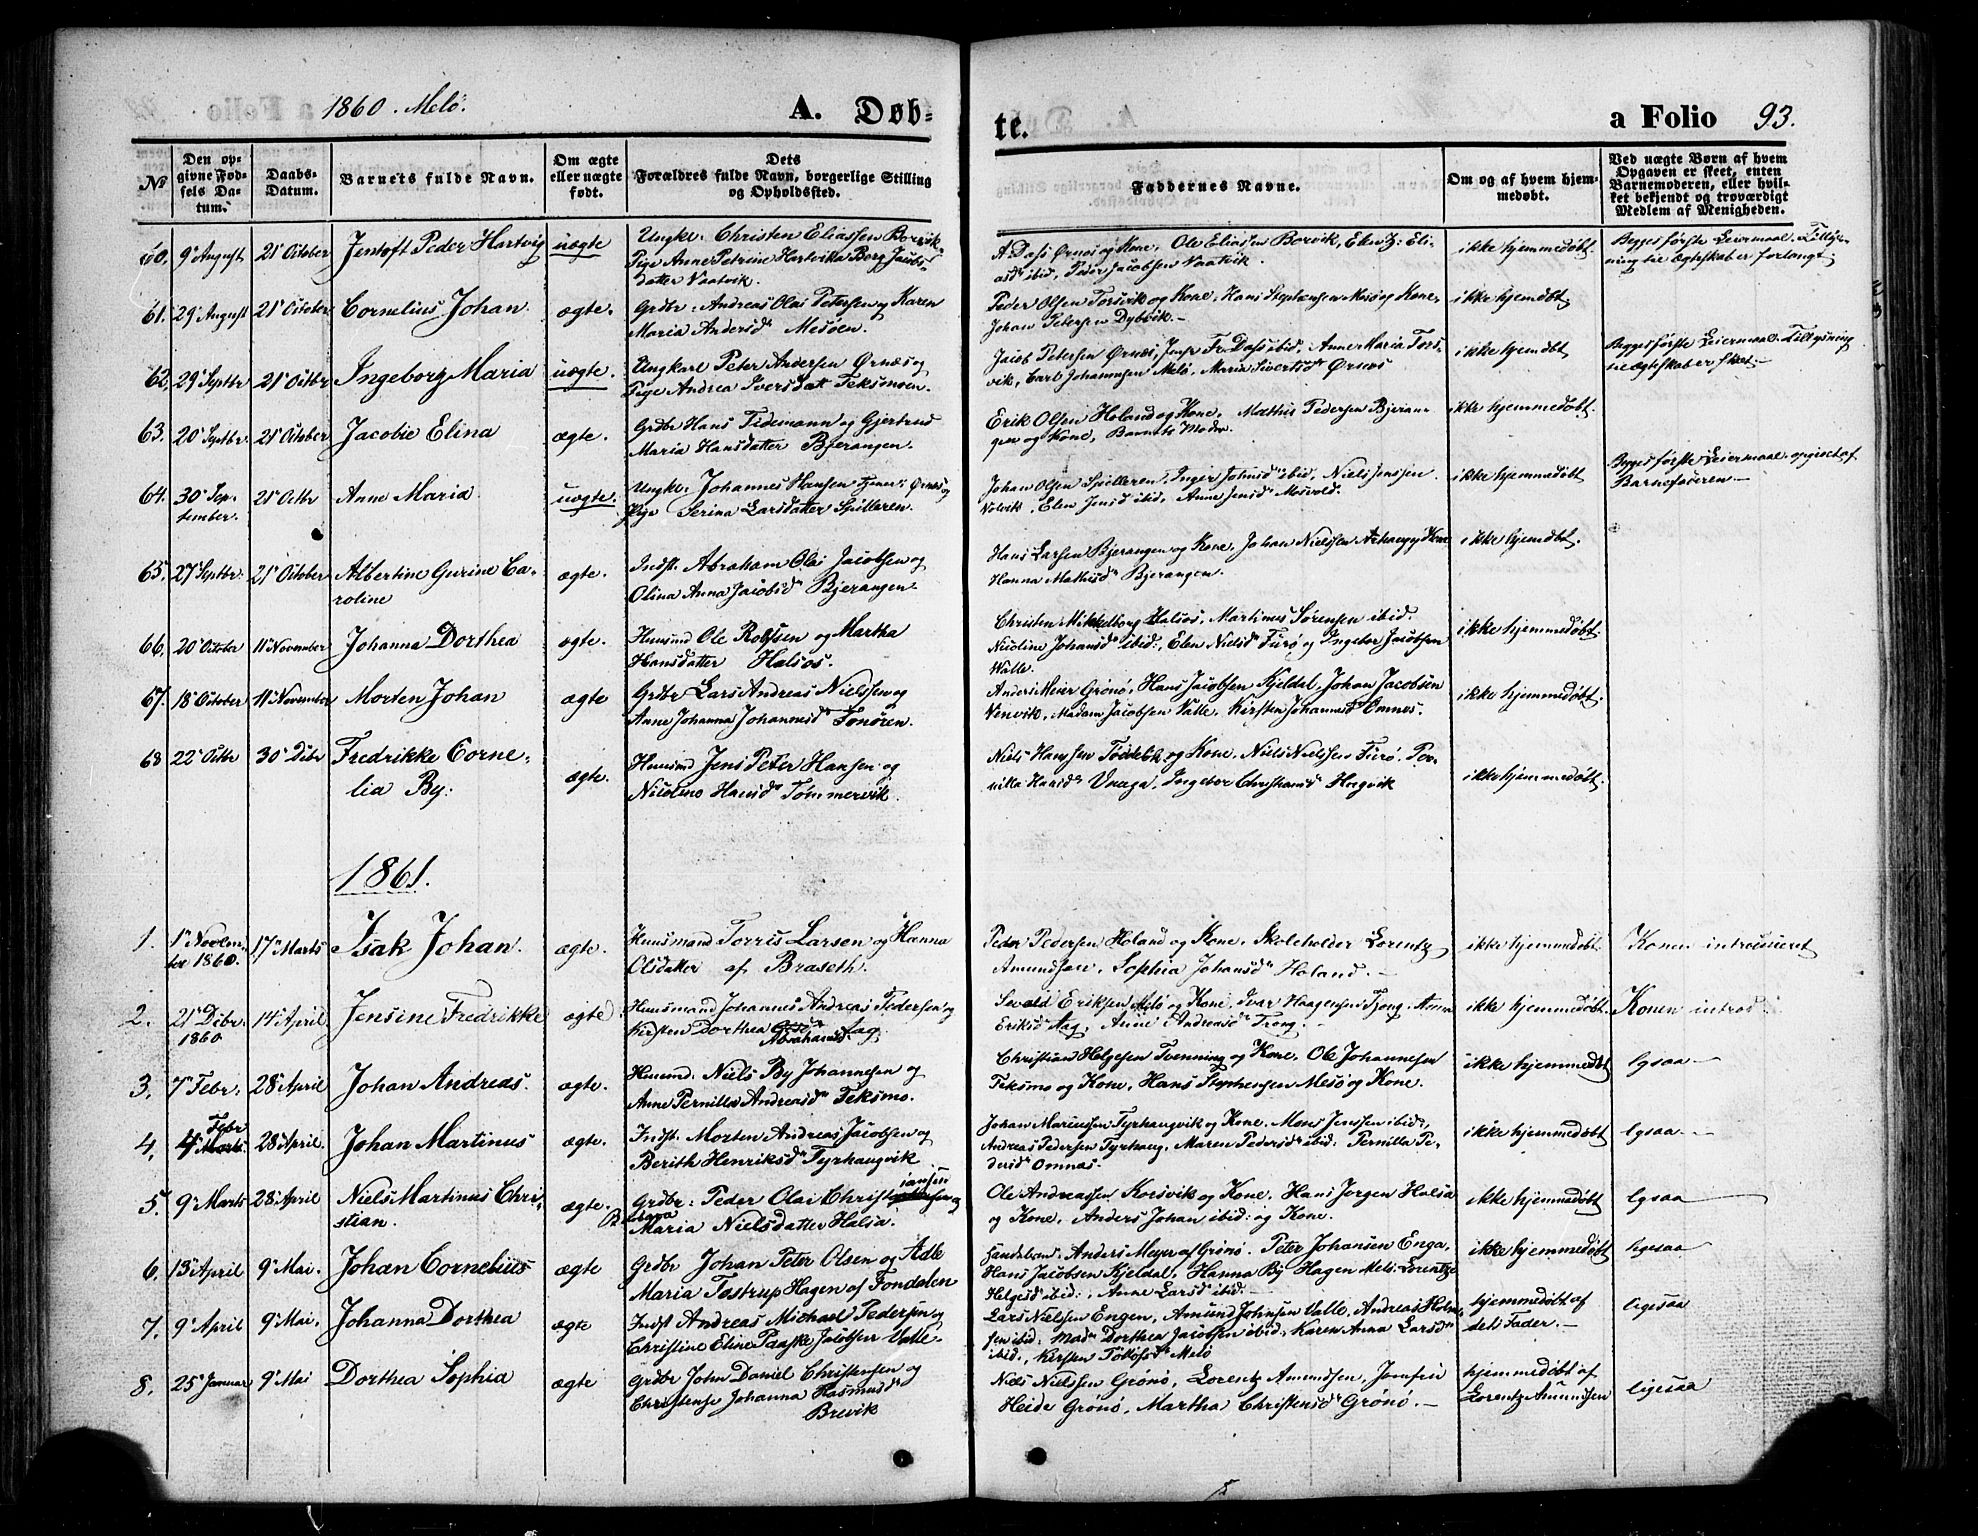 1860. Melö. A. Døb- te. a Folio 93.
№ Den op- givne Fød- sels Da- tum. Daabs- Datum. Barnets fulde Navn. Om ægte eller nægte født. Dets Forældres fulde Navn, borgerlige Stilling og Opholdssted. Faddernes Navne. Om og af hvem hjem- medøbt. Ved uægte Børn af hvem Opgaven er skeet, enten Barnemoderen, eller hvil- ket bekjendt og troværdigt Medlem af Menigheden.
60. 9 August 21 October Jentoft Peder Hartvig uægte Ungkl. Christen Eliassen Borvik Pige Anne Petrine Hartvikka Borg Jacobs- datter Vaatvik. A Dass Ørnes og Kone, Ole Eliassen Borvik, Eli- asd ibid, Peder Jacobsen Vaatvik. ikke hjemmedøbt. Begges første Leiermaal. Tillys- ning til Ægteskab er forlangt.
61. 29 August 21 October Cornelius Johan. ægte. Grdbr. Andreas Olai Petersen og Karen Maria Andersd Mesöen. Peder Olsen Torsvik og Kone, Hans Stephensen Mesö og Kone, Johan Petersen Dybvik. ikke hjemdøbt
62. 29 Septbr 21 Octbr Ingeborg Maria uægte. Ungkarl Peter Andersen Ørnæs og Pige Andrea Iversdatt Teksmoen. Jacob Petersen Ørnæs, Jomf Fr. Dass ibid, Anne Maria Tors- vik, Carl Johannesen Melö, Maria Sivertsd Ørnæs ikke hjemdøbt Begges første Leiermaal. Tillysning til ægteskab er skeet.
63. 20 Septbr. 21 October Jacobie Elina ægte. Grdbr Hans Tidemann og Gjertrud Maria Hansdatter Bjerangen. Erik Olsen Holand og Kone, Mathis Pedersen Bjeran- gen og Kone, Barnets Moder. ikke hjemmedøbt.
64. 30 Sep- tember. 21 Octbr Anne Maria. uægte. Ungkl. Johannes Hansen Tjen: Ørnes og Pige Serina Larsdatter Spilderen. Johan Olsen Spilleren, Inger Johnsd ibid, Niels Jenssen Nolvik, Elen Jensd ibid, Anne Jensd Mosvold. ikke hjemmedøbt Begges første Leiermaal. opgivet af Barnefaderen
65. 27 Septbr. 21 October Albertine Gurine Ca- roline ægte. Indst. Abraham Olai Jacobsen og Olina Anna Jacobsd Bjerangen. Hans Larsen Bjerangen og Kone, Johan Nielssen og Kone Hanna Mathisd Bjerangen. ikke hjemdøbt.
66. 20 October 11 November Johanna Dorthea ægte. Huusmd Ole Rolfsen og Martha Hansdatter Halsos. Christen Mikkelborg Halsos, Martines Sørensen ibid. Nicoline Johansd ibid., Elen Nielsd Furø og Ingebor Jacobsen Walle. ikke hjemmedøbt.
67. 18 October 11 November Morten Johan ægte Grdbr Lars Andreas Nielssen og Anne Johanna Johannesd Fonören. Anders Meier Grönö, Hans Jacobsen Kjeldal, Johan Jacobsen Venvik, Madam Jacobsen Valle, Kirsten Johannesd Omnes. ikke hjemmedøbt.
68 22 Octbr 30 Dcbr Fredrikke Corne- lia By. ægte. Huusmd Jens Peter Hansen og Nicoline Hansd Tömmervik. Niels Hanssen og Kone, Niels Nielssen Furö, Per- nilla Hansd, Ingebor Christiansd Hagvik ikke hjemmedøbt.
1861.
1. 1 Novem- ber 1860. 17 Marts Isak Johan. ægte. Huusmand Torris Larsen og Hanna Olsdatter af Braseth. Peder Pedersen Holand og Kone, Skoleholder Lorentz Amundsen, Sophia Johansd Holand. ikke hjemmedøbt. Konen introduceret
2. 21 Dcbr. 1860 14 April Jensine Fredrikke ægte Huusmand Johannes Andreas Pedersen og Kirsten Dorthea Abrahamsd Aag. Sevald Eriksen Melö og Kone, Ivar Haagensen Tjong, Anna Eriksd Aag, Anne Andreasd Trong. ikke hjemmedøbt. Konen introd
3. 7 Febr. 28 April Johan Andreas. ægte. Huusmd. Niels By Johannesen og Anne Pernilla Andreasd Teksmo. Christian Helgesen Tvenning og Kone, Ole Johannesen Teksmo og Kone, Hans Stephensen Mesö og Kone. ikke hjemmedøbt lgsaa
4. 4 Febr Marts 28 April. Johan Martinus ægte. Indst. Morten Andreas Jacobsen og Berith Henriksd Tyrhaugvik Johan Mariussen Tyrhaugvik og Kone, Mons Jenssen ibid, Andreas Pedersen Tyrhaug, Maren Pedersd ibid. Pernilla Pe- dersd Omnæs. ikke hjemmedøbt lgsaa
5. 9 Marts 28 April Niels Martinus Chri- stian. ægte. Grdbr: Peder Olai Christiansen og Maria Nielsdatter Halsa. Ole Andreassen Korsvik og Kone, Hans Jørgen Halsa og Kone, Anders Johan ibid: og Kone. ikke hjemmedøbt lgsaa
6. 13 April 9 Mai. Johan Cornelius ægte Grdbr Johan Peter Olsen og Adle Maria Tostrup Hagen af Fondalen Handelsmd. Anders Meyer af Grönö. Peter Johansen Enga, Hans Jacobsen Kjeldal, Hanna By Hagen Melö. Lorentze Helgesd ibid:, Anne Larsd ibid. ikke hjemmedøbt ligesaa
7. 9 April 9 Mai. Johanna Dorthea ægte Indst Andreas Michael Pedersen og Christine Eline Paaske Jacobsen Valle. Lars Nielsen Engen, Amund Johnsen Valle, Andreas ibid: Mad Dorthea Jacobsen ibid, Karen Anna Larsd ibid., Kirsten Melö hjemmedøbt af dets Fader. ligesaa
8. 25 Januar 9 Mai Dorthea Sophia ægte Grdbr John Daniel Christensen og Christense Johanna Rasmusd Brevik Niels Nielssen Grönö, Lorentz Amundsen, Jomfru Heide Grönö, Martha Christensd Grönö. hjemmedøbt af Lorentz Amundsen ligesaa